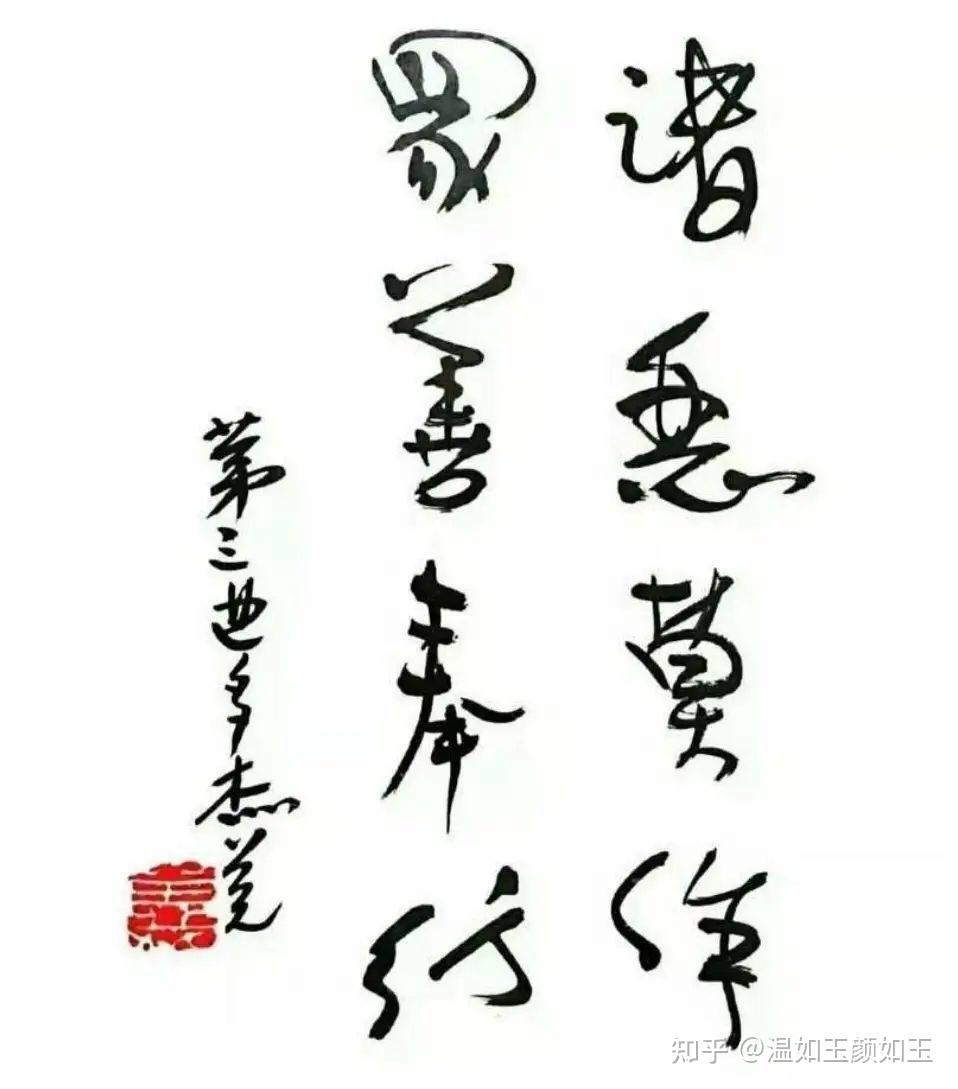 諸惡莫作
眾善奉行
第三世多杰羌
知乎 @温如玉颜如玉